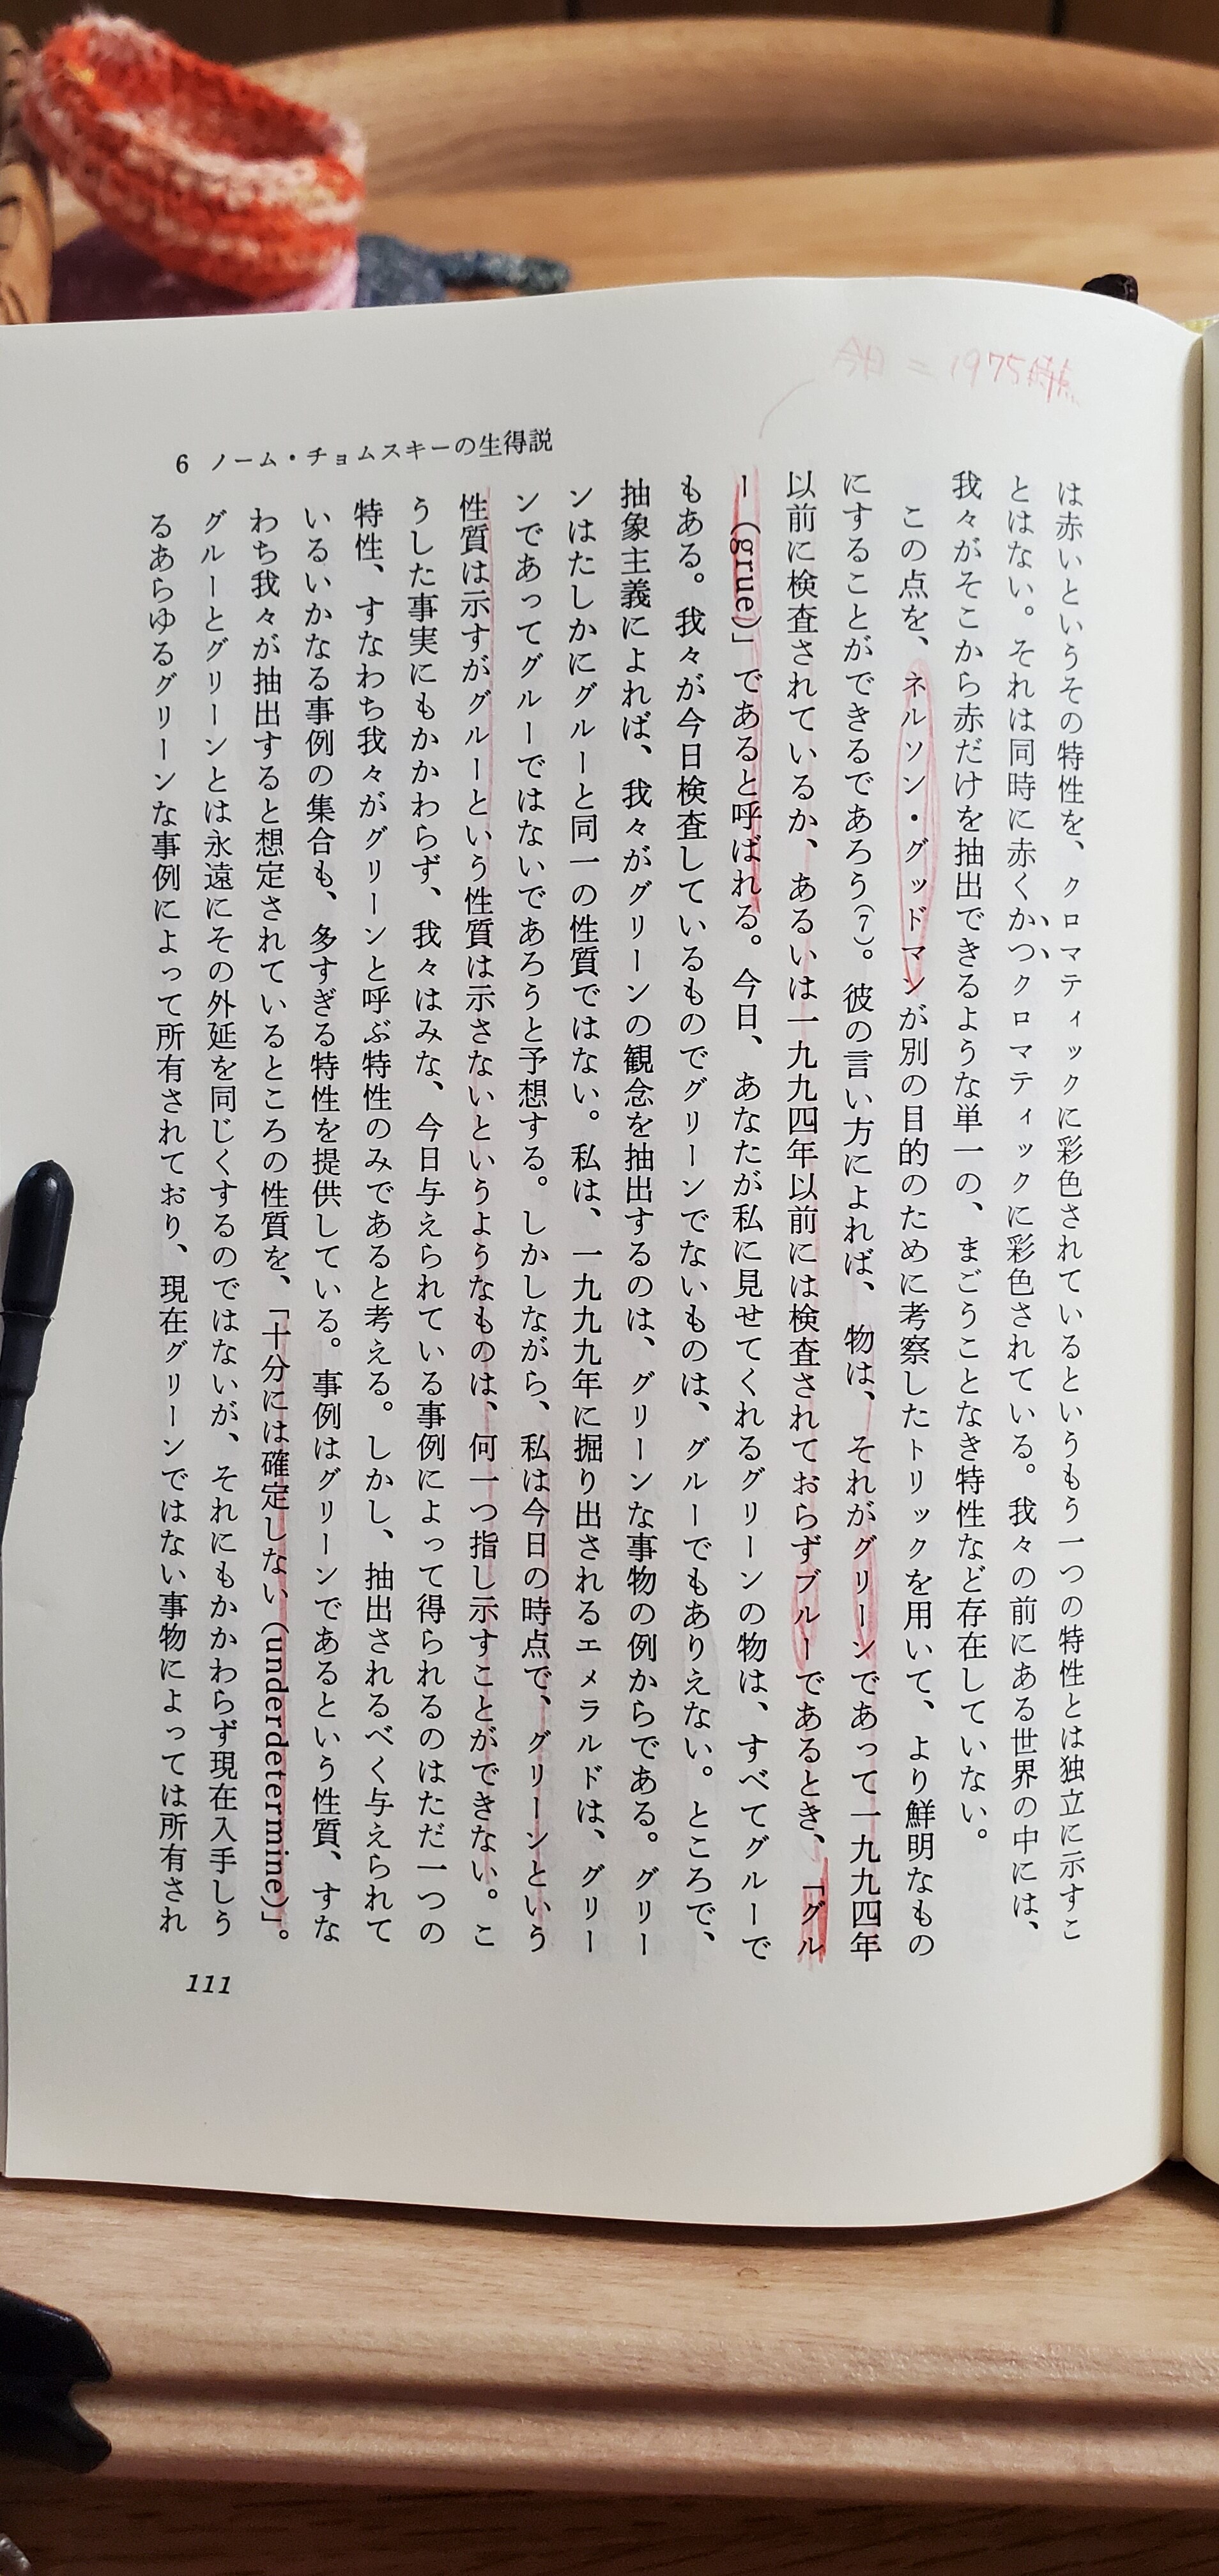 今日 = 1975時点
6 ノーム・チョムスキーの生得説
は赤いというその特性を、クロマティックに彩色されているというもう一つの特性とは独立に示すこ
とはない。それは同時に赤くかつクロマティックに彩色されている。我々の前にある世界の中には、
我々がそこから赤だけを抽出できるような単一の、まごうことなき特性など存在していない。
この点を、ネルソン・グッドマンが別の目的のために考察したトリックを用いて、より鮮明なもの
にすることができるであろう(7)。彼の言い方によれば、物は、それがグリーンであって一九九四年
以前に検査されているか、あるいは一九九四年以前には検査されておらずブルーであるとき、「グル
ー(grue)」であると呼ばれる。今日、あなたが私に見せてくれるグリーンの物は、すべてグルーで
もある。我々が今日検査しているものでグリーンでないものは、グルーでもありえない。ところで、
抽象主義によれば、我々がグリーンの観念を抽出するのは、グリーンな事物の例からである。グリー
ンはたしかにグルーと同一の性質ではない。私は、一九九九年に掘り出されるエメラルドは、グリー
ンであってグルーではないであろうと予想する。しかしながら、私は今日の時点で、グリーンという
性質は示すがグルーという性質は示さないというようなものは、何一つ指し示すことができない。こ
うした事実にもかかわらず、我々はみな、今日与えられている事例によって得られるのはただ一つの
特性、すなわち我々がグリーンと呼ぶ特性のみであると考える。しかし、抽出されるべく与えられて
いるいかなる事例の集合も、多すぎる特性を提供している。事例はグリーンであるという性質、すな
わち我々が抽出すると想定されているところの性質を、「十分には確定しない(underdetermine)」。
グルーとグリーンとは永遠にその外延を同じくするのではないが、それにもかかわらず現在入手しう
るあらゆるグリーンな事例によって所有されており、現在グリーンではない事物によっては所有され
111